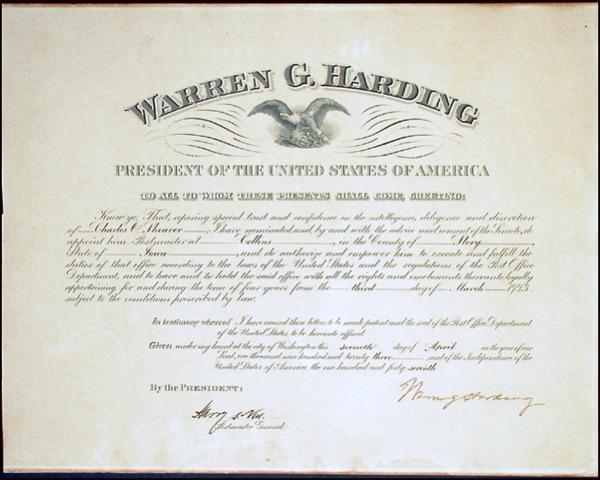 WARREN G. HARDING
PRESIDENT OF THE UNITED STATES OF AMERICA
TO ALL TO WHOM THESE PRESENTS SHALL COME, GREETING:
Know ye, That, reposing special trust and confidence in the intelligence, diligence and discretion
of Charles C. Shearer, I have nominated, and, by and with the advice and consent of the Senate, do
appoint him Postmaster at Collins, in the County of Story,
State of Iowa, and do authorize and empower him to execute and fulfill the
duties of that office according to the laws of the United States and the regulations of the Post Office
Department, and to have and to hold the said office, with all the rights and emoluments thereunto legally
appertaining, for and during the term of four years from the third day of March 1923,
subject to the conditions prescribed by law.
In testimony whereof I have caused these letters to be made patent and the seal of the Post Office Department
of the United States to be hereunto affixed.
Given under my hand at the city of Washington this seventh day of April in the year of our
Lord, one thousand nine hundred and twenty three, and of the Independence of the
United States of America the one hundred and forty seventh
By the PRESIDENT:
Warren G Harding
Harry S. New
Postmaster General.